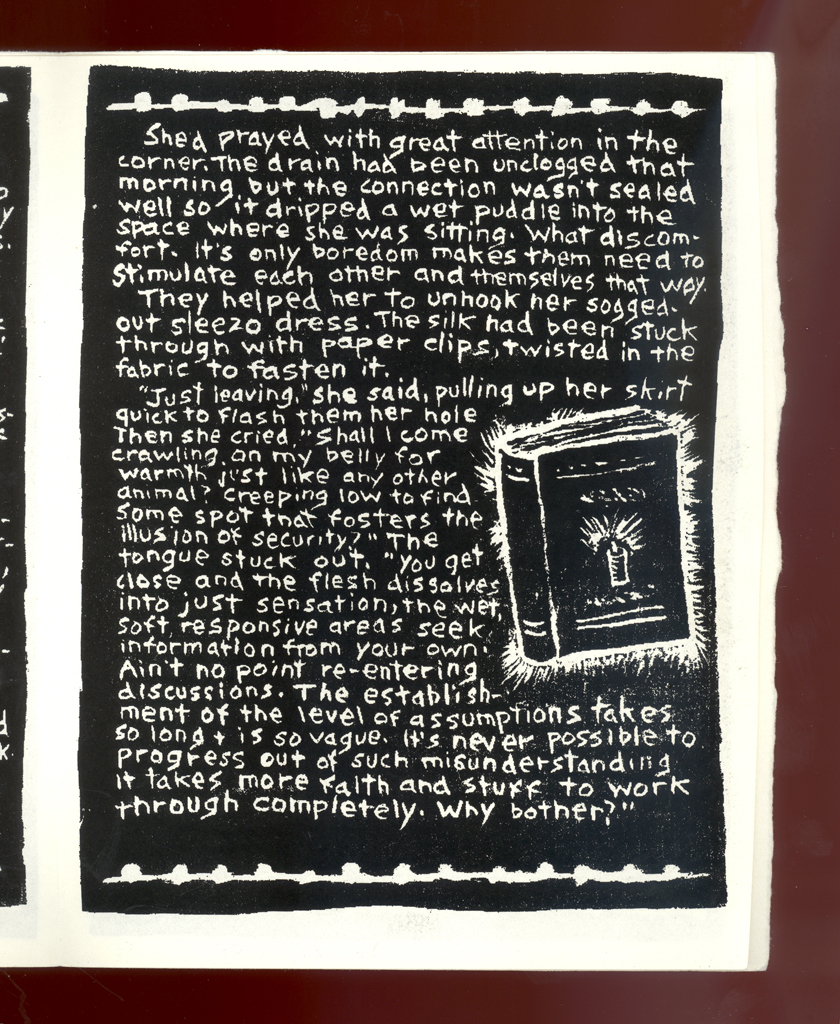 She'd prayed with great attention in the
corner. The drain had been unclogged that
morning, but the connection wasn't sealed
well so it dripped a wet puddle into the
space where she was sitting. What discom-
fort. It's only boredom makes them need to
stimulate each other and themselves that way.
They helped her to unhook her sogged-
out sleezo dress. The silk had been stuck
through with paper clips, twisted in the
fabric to fasten it.
"Just leaving," she said, pulling up her skirt
quick to flash them her hole
Then she cried, "Shall I come
crawling on my belly for
warmth just like any other
animal? Creeping low to find
some spot that fosters the
illusion of security?" The
tongue stuck out. "You get
close and the flesh dissolves
into just sensation, the wet,
soft, responsive areas seek
information from your own.
Ain't no point re-entering
discussions. The establish-
ment of the level of assumptions takes
so long & is so vague. It's never possible to
progress out of such misunderstanding
it takes more faith and stuff to work
through completely. Why bother?"